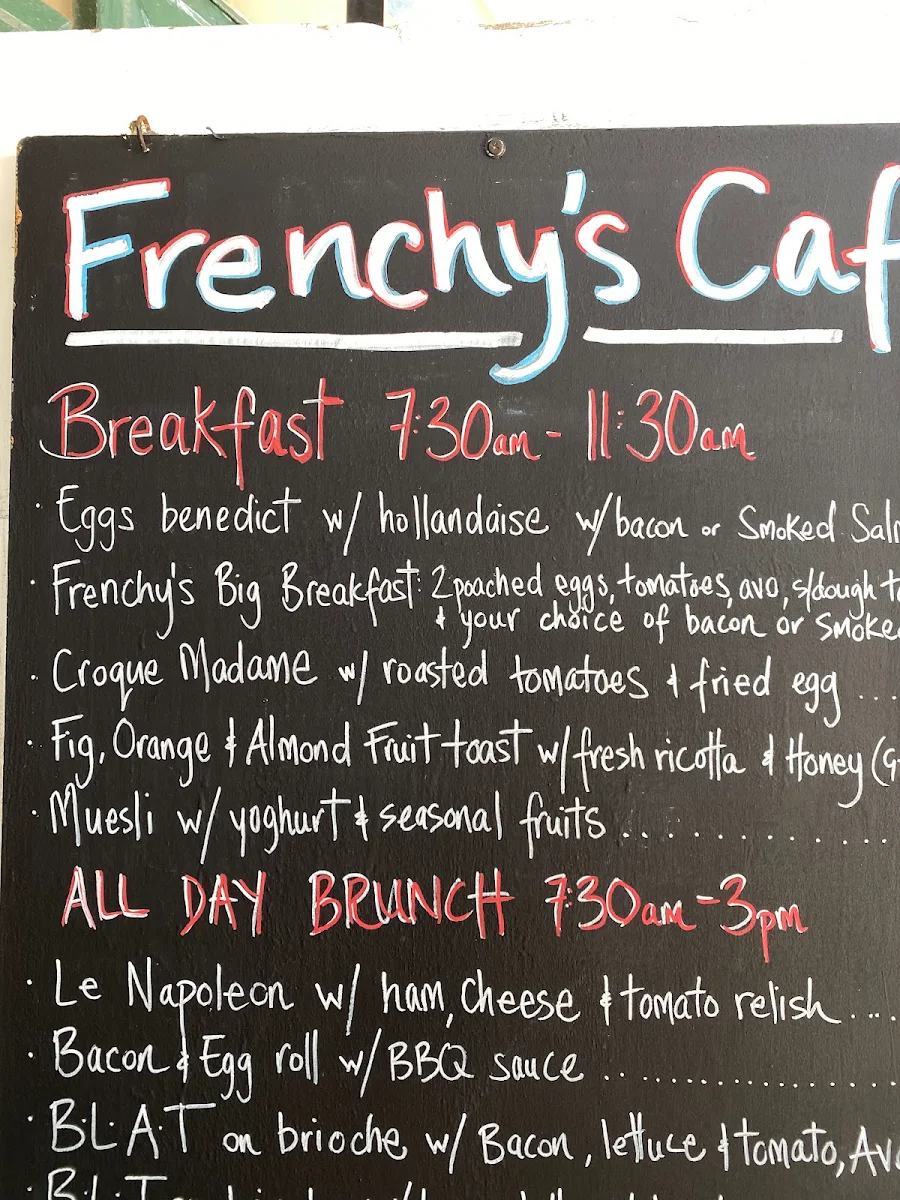 Frenchy's Caf
Breakfast 7:30am - 11:30am
· Eggs benedict w/ hollandaise w/bacon or Smoked Sal
· Frenchy's Big Breakfast: 2 poached eggs, tomatoes, avo, s/dough t
& your choice of bacon or smoke
· Croque Madame w/ roasted tomatoes & fried egg ...
· Fig, Orange & Almond Fruit toast w/ fresh ricotta & Honey (G
· Muesli w/ yoghurt & seasonal fruits ............
ALL DAY BRUNCH 7:30am - 3pm
· Le Napoleon w/ ham, cheese & tomato relish ....
· Bacon & Egg roll w/ BBQ sauce ..................
· B.L.A.T on brioche w/ Bacon, lettuce & tomato, Avo